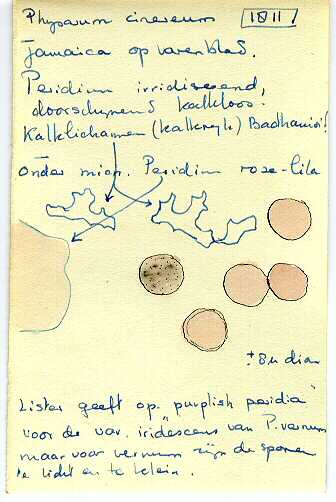 Physarum cinereum 1811
Jamaica op varenblad.
Peridium irridiserend,
doorschijnend kalkloos.
Kalklichamen (kalkrijk) Badhamia!
onder micr. Peridium rose-lila
± 8µ diam
Lister geeft op "purplish peridia"
voor de var. iridescens van P. vernum
maar voor vernum zijn de sporen
te licht en te klein.